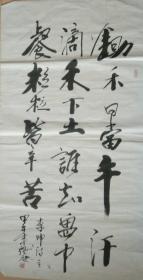 鋤禾日當午汗
滴禾下土誰知盤中
餐粒粒皆辛苦
李紳詩
甲午